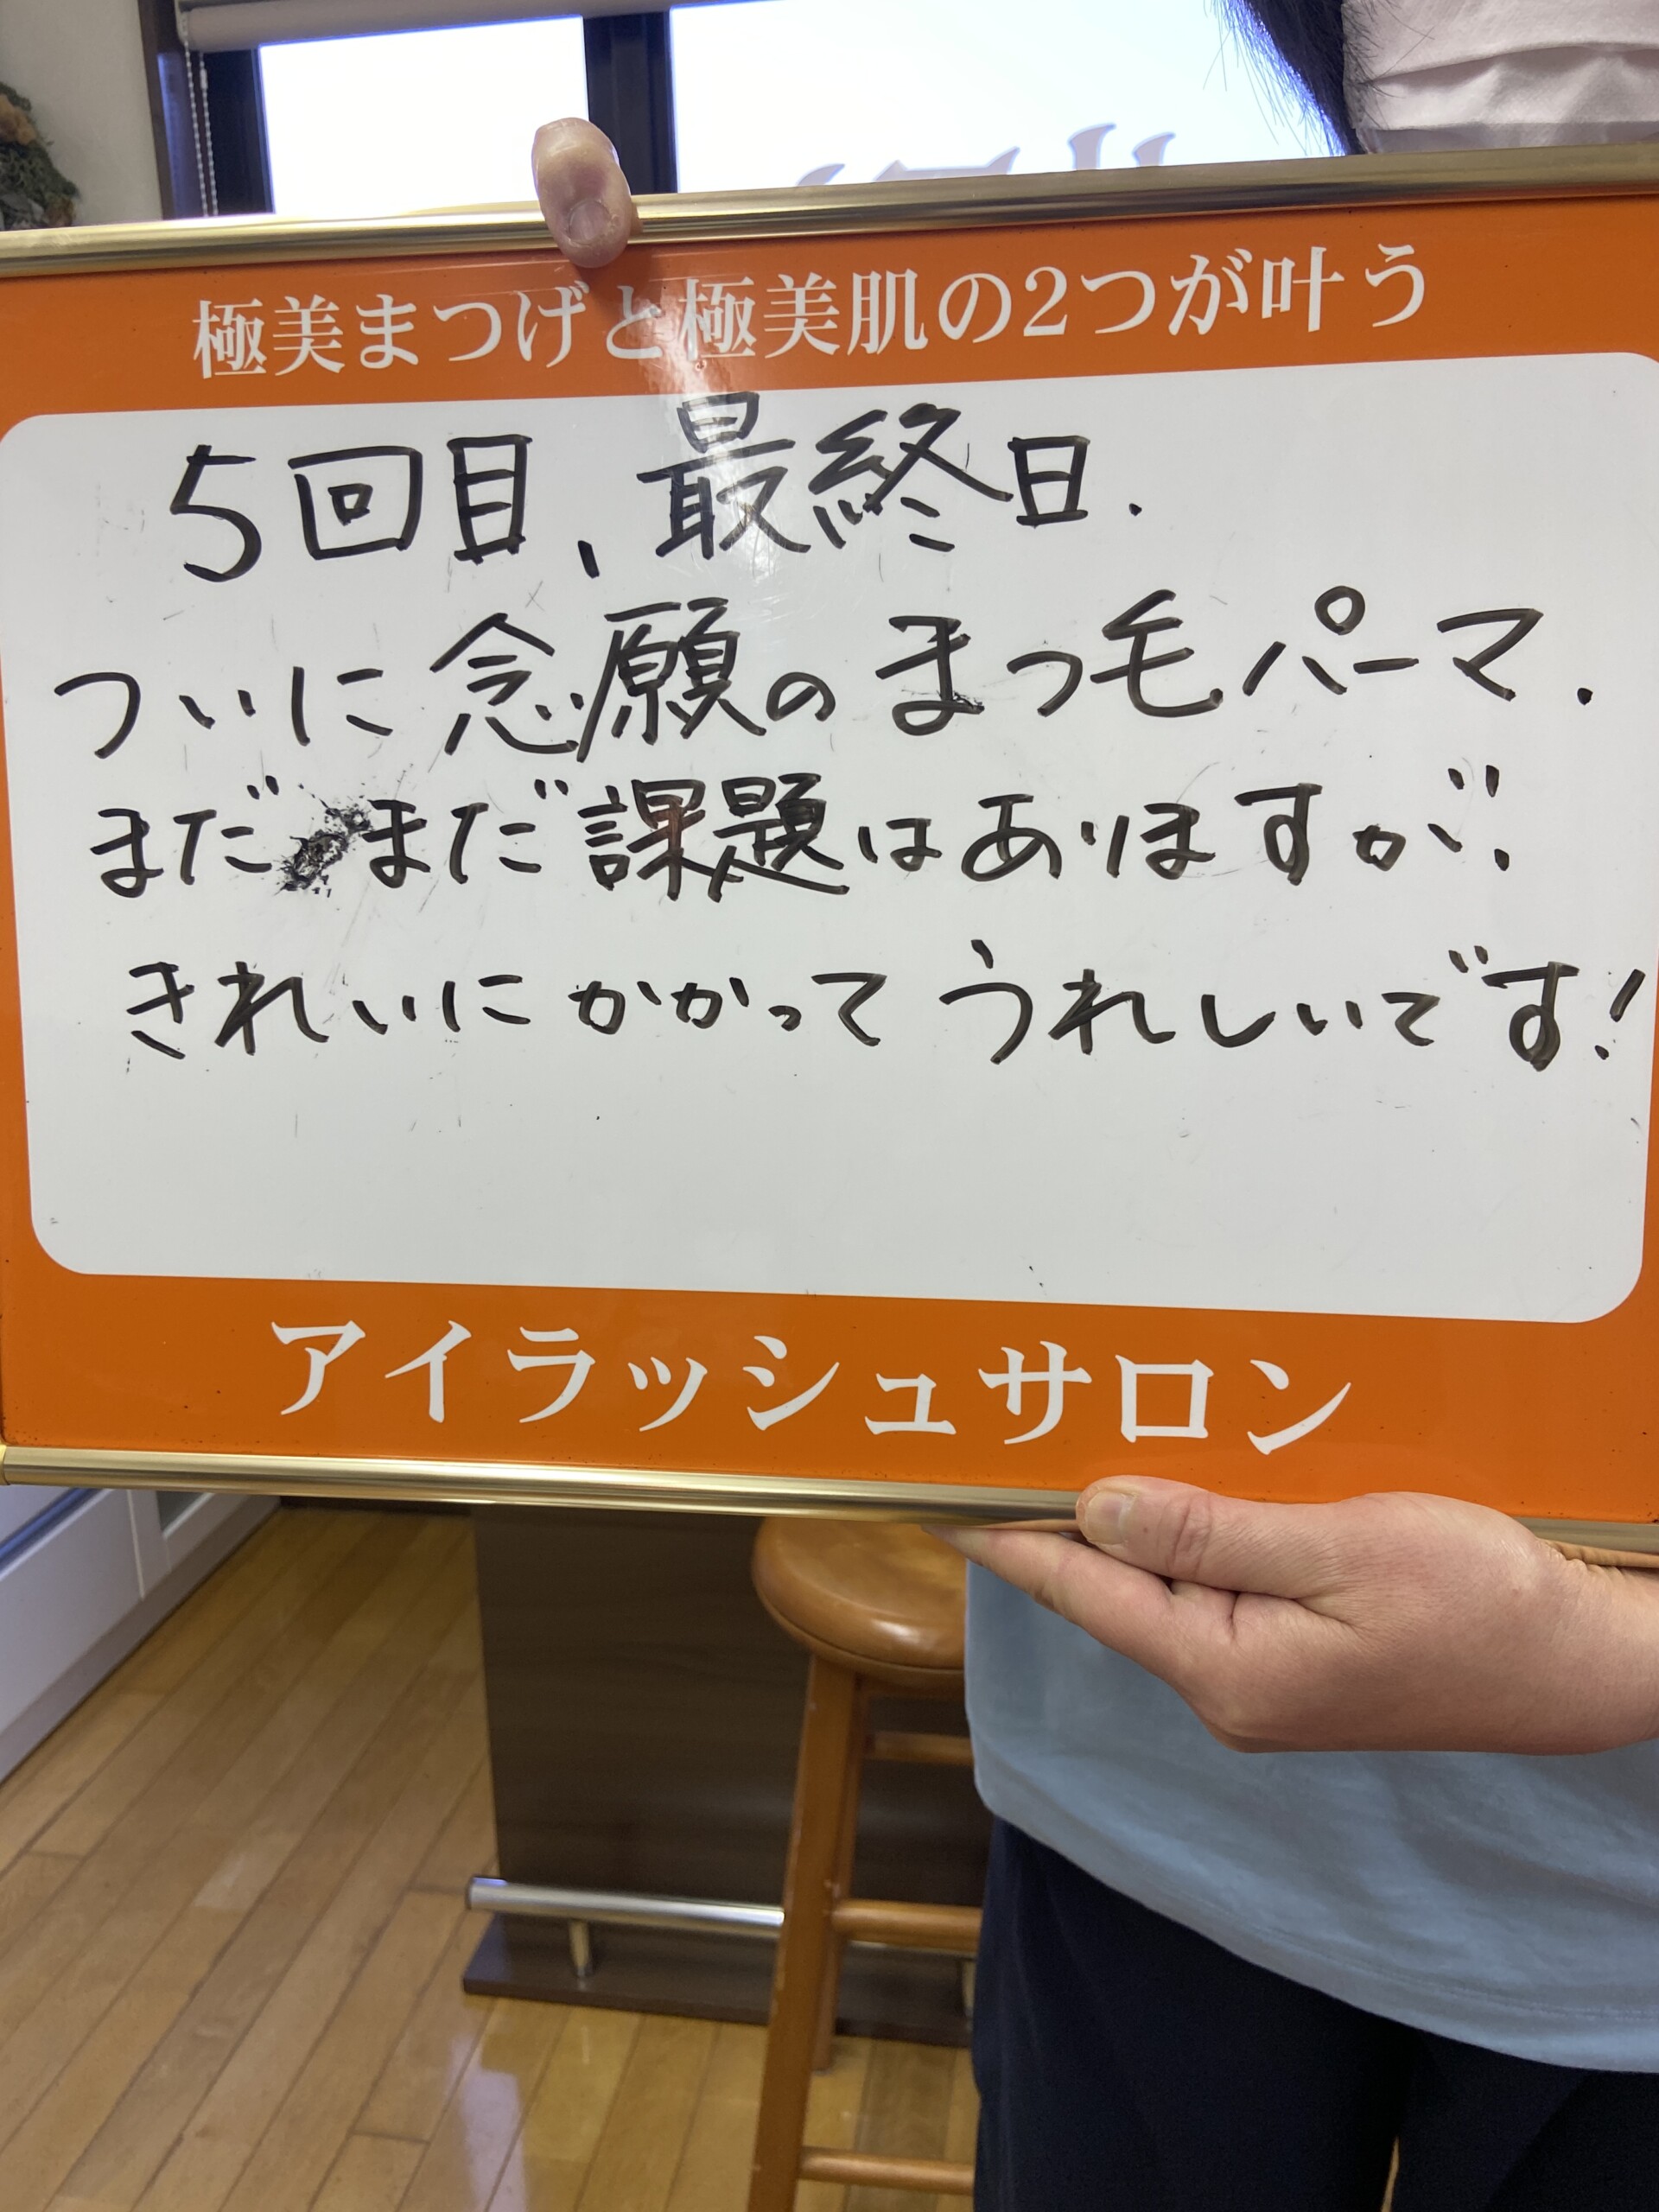 極美まつげと極美肌の2つが叶う
5回目、最終日.
ついに念願のまつ毛パーマ.
まだまだ課題はありますが、
きれいにかかってうれしいです!
アイラッシュサロン